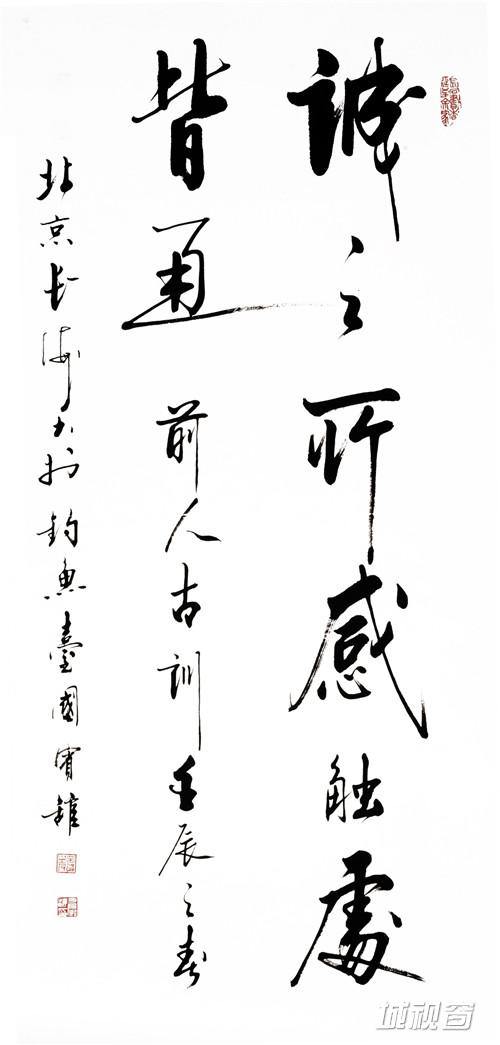 誠之所感触處
皆通 前人古訓壬辰之春
北京長海书於釣魚臺國賓館
城视窗